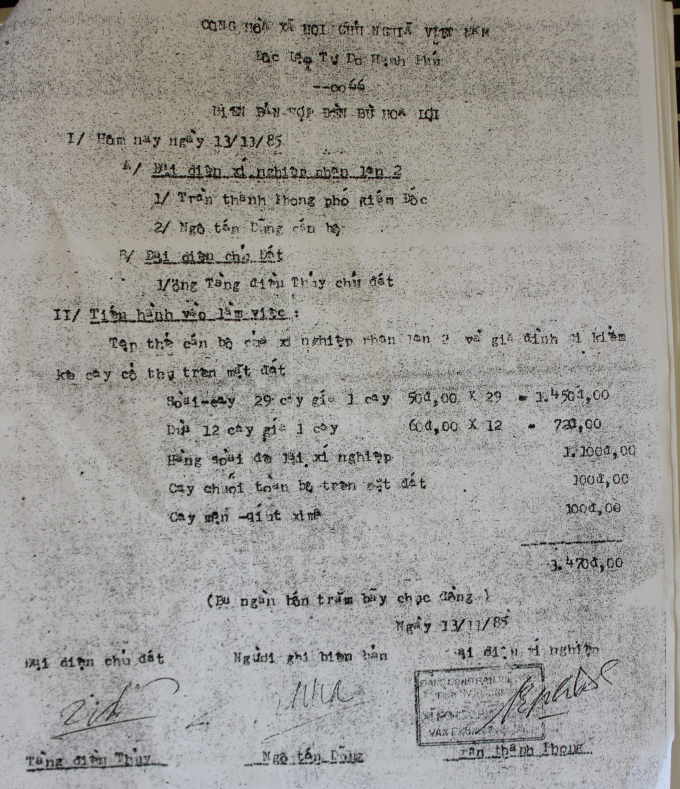 CỘNG HÒA XÃ HỘI CHỦ NGHĨA VIỆT NAM
Độc Lập Tự Do Hạnh Phú
--oo66
BIÊN BẢN HỢP ĐỀN BÙ HOA LỢI
I/ Hôm nay ngày 13/11/85
A/ Đại diện xí nghiệp phân lân 2
1/ Trần thành Phong phó giám Đốc
2/ Ngô tấn Dũng cán bộ
B/ Đại diện chủ Đất
1/ông Tăng điều Thủy chủ đất
II/ Tiến hành vào làm việc :
Tập thể cán bộ của xí nghiệp phân lân 2 và gia đình đi kiểm
kê cây cổ thụ trên mặt đất
Soài-cây 29 cây giá 1 cây 50đ,00 X 29 = 1.450đ,00
Dừa 12 cây giá 1 cây 60đ,00 X 12 = 720,00
Hàng soài để lại xí nghiệp 1.100đ,00
Cây chuối toàn bộ trên mặt đất 100đ,00
Cây mận -quít 100đ,00
3.470đ,00
(Ba ngàn bốn trăm bãy chục đồng )
Ngày 13/11/85
Đại diện chủ đất Người ghi biên bản Đại diện xí nghiệp
Tăng điều Thủy Ngô tấn Dũng Trần thành Phong